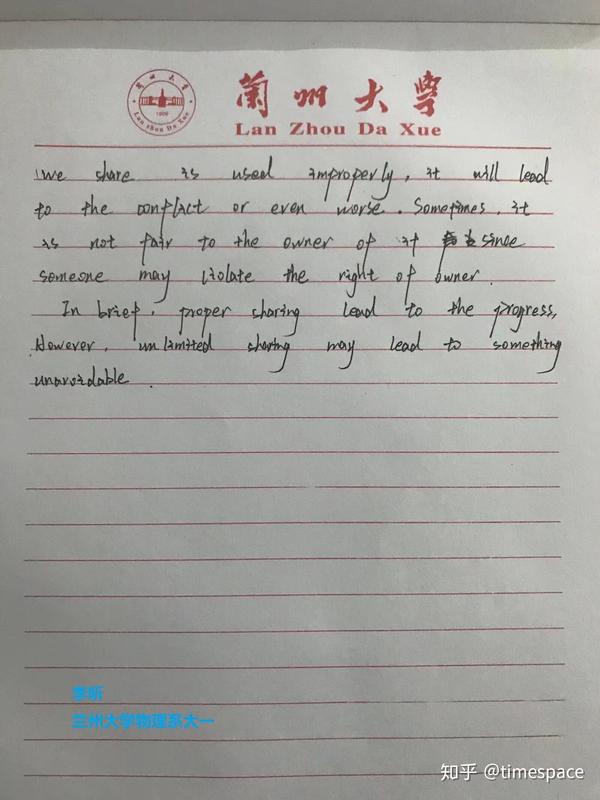 蘭州大學
Lan Zhou Da Xue
蘭州大學
1909
Lan Zhou Da Xue
we share is used improperly, it will lead
to the conflict or even worse. Sometimes, it
is not fair to the owner of it since
someone may violate the right of owner.
In brief, proper sharing lead to the progress,
However, unlimited sharing may lead to something
unavoidable.
李昕
兰州大学物理系大一
知乎 @timespace